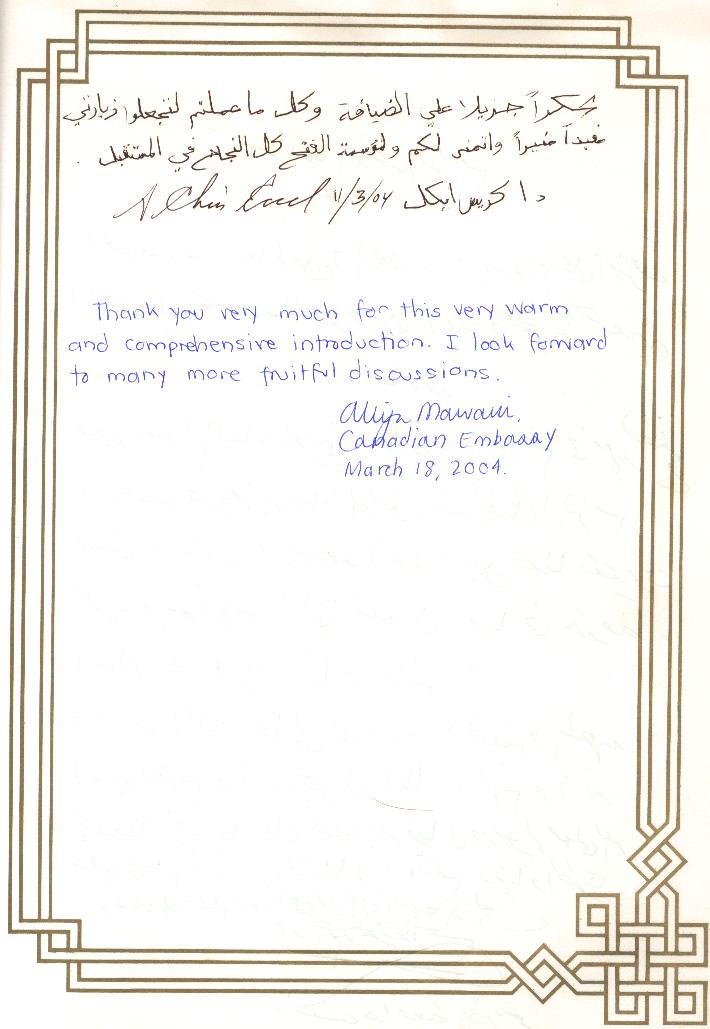 شكراً جزيلا على الضيافة وكل ما عملتم لتجعلوا زيارتي
مفيداً مثيراً واتمنى لكم ولمؤسسة الفقح كل النجاح في المستقبل .
د ا كريس ايكل 11/3/04 A Chris
Thank you very much for this very warm
and comprehensive introduction. I look forward
to many more fruitful discussions.
Aliya Mawani,
Canadian Embassy
March 18, 2004.